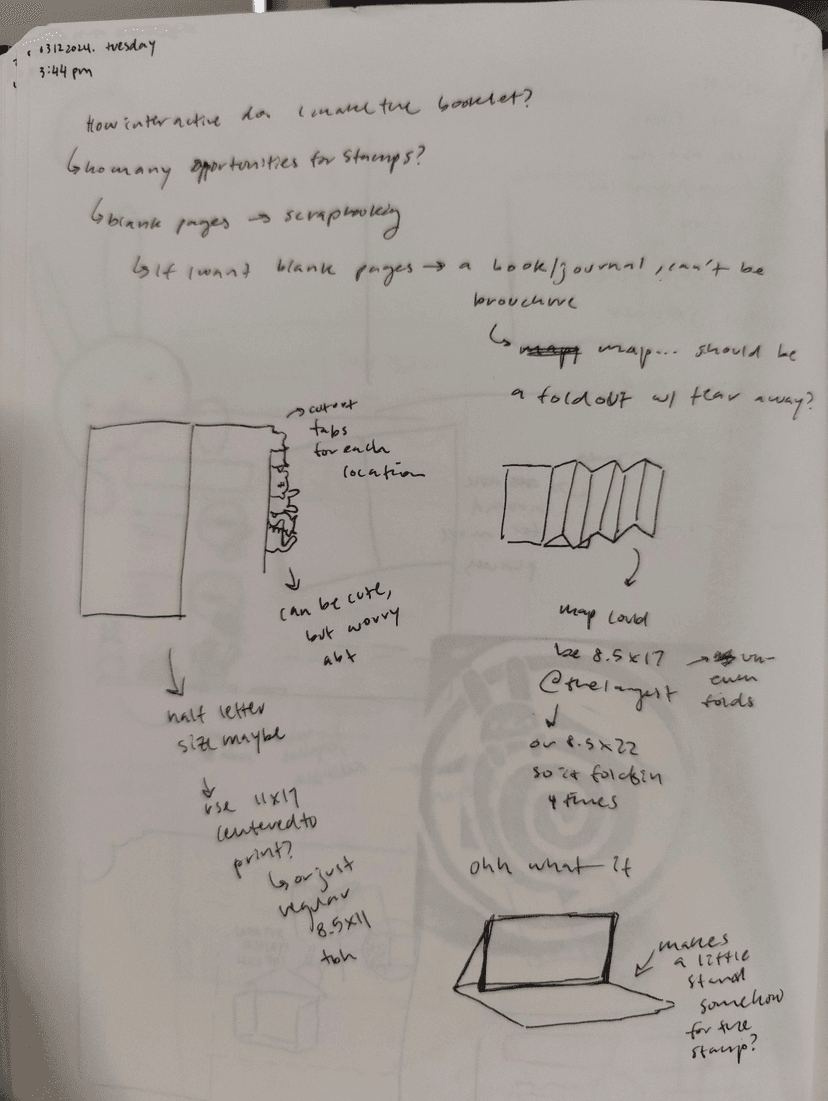 03122024. tuesday
3:44 pm
How interactive do I make the booklet?
↳ how many opportunities for stamps?
↳ blank pages → scrapbooking
↳ If I want blank pages → a book/journal, can't be
brouchure
↳ map... should be
a foldout w/ tear away?
→ cutout
tabs
for each
location
can be cute,
but worry
abt
half letter
size maybe
use 11x17
centered to
print?
↳ or just
regular
8.5x11
tbh
map could
be 8.5x17
@ the largest
→ un-
even
folds
or 8.5x22
so it folds in
4 times
ohh what if
makes
a little
stand
somehow
for the
stamp?